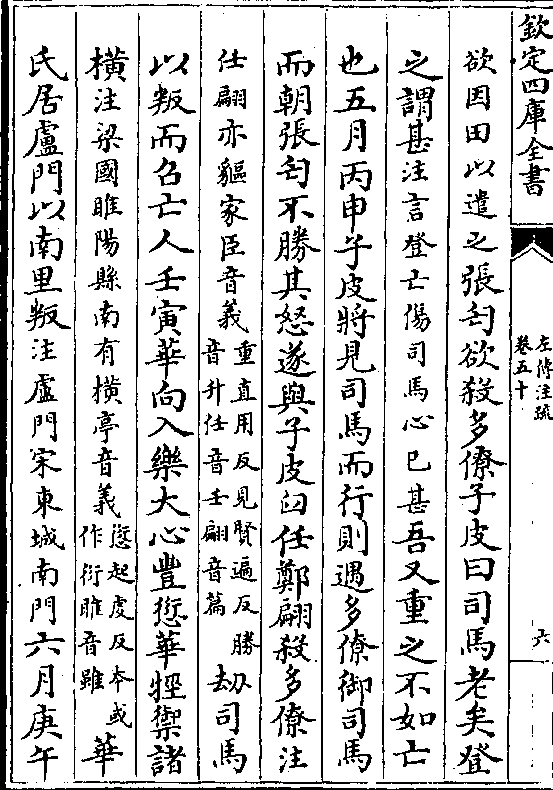 欽定四庫全書
左傳注疏
卷五十
六
欲因田以遣之張匄欲殺多僚子皮曰司馬老矣登
之謂甚注言登亡傷司馬心已甚吾又重之不如亡
也五月丙申子皮將見司馬而行則遇多僚御司馬
而朝張匄不勝其怒遂與子皮臼任鄭翩殺多僚注
任翩亦貙家臣音義重直用反見賢遍反勝
音升任音壬翩音篇劫司馬
以叛而召亡人壬寅華向入樂大心豐愆華牼禦諸
橫注梁國睢陽縣南有橫亭音義愆起虔反本或
作衍睢音雖華
氏居盧門以南里叛注盧門宋東城南門六月庚午